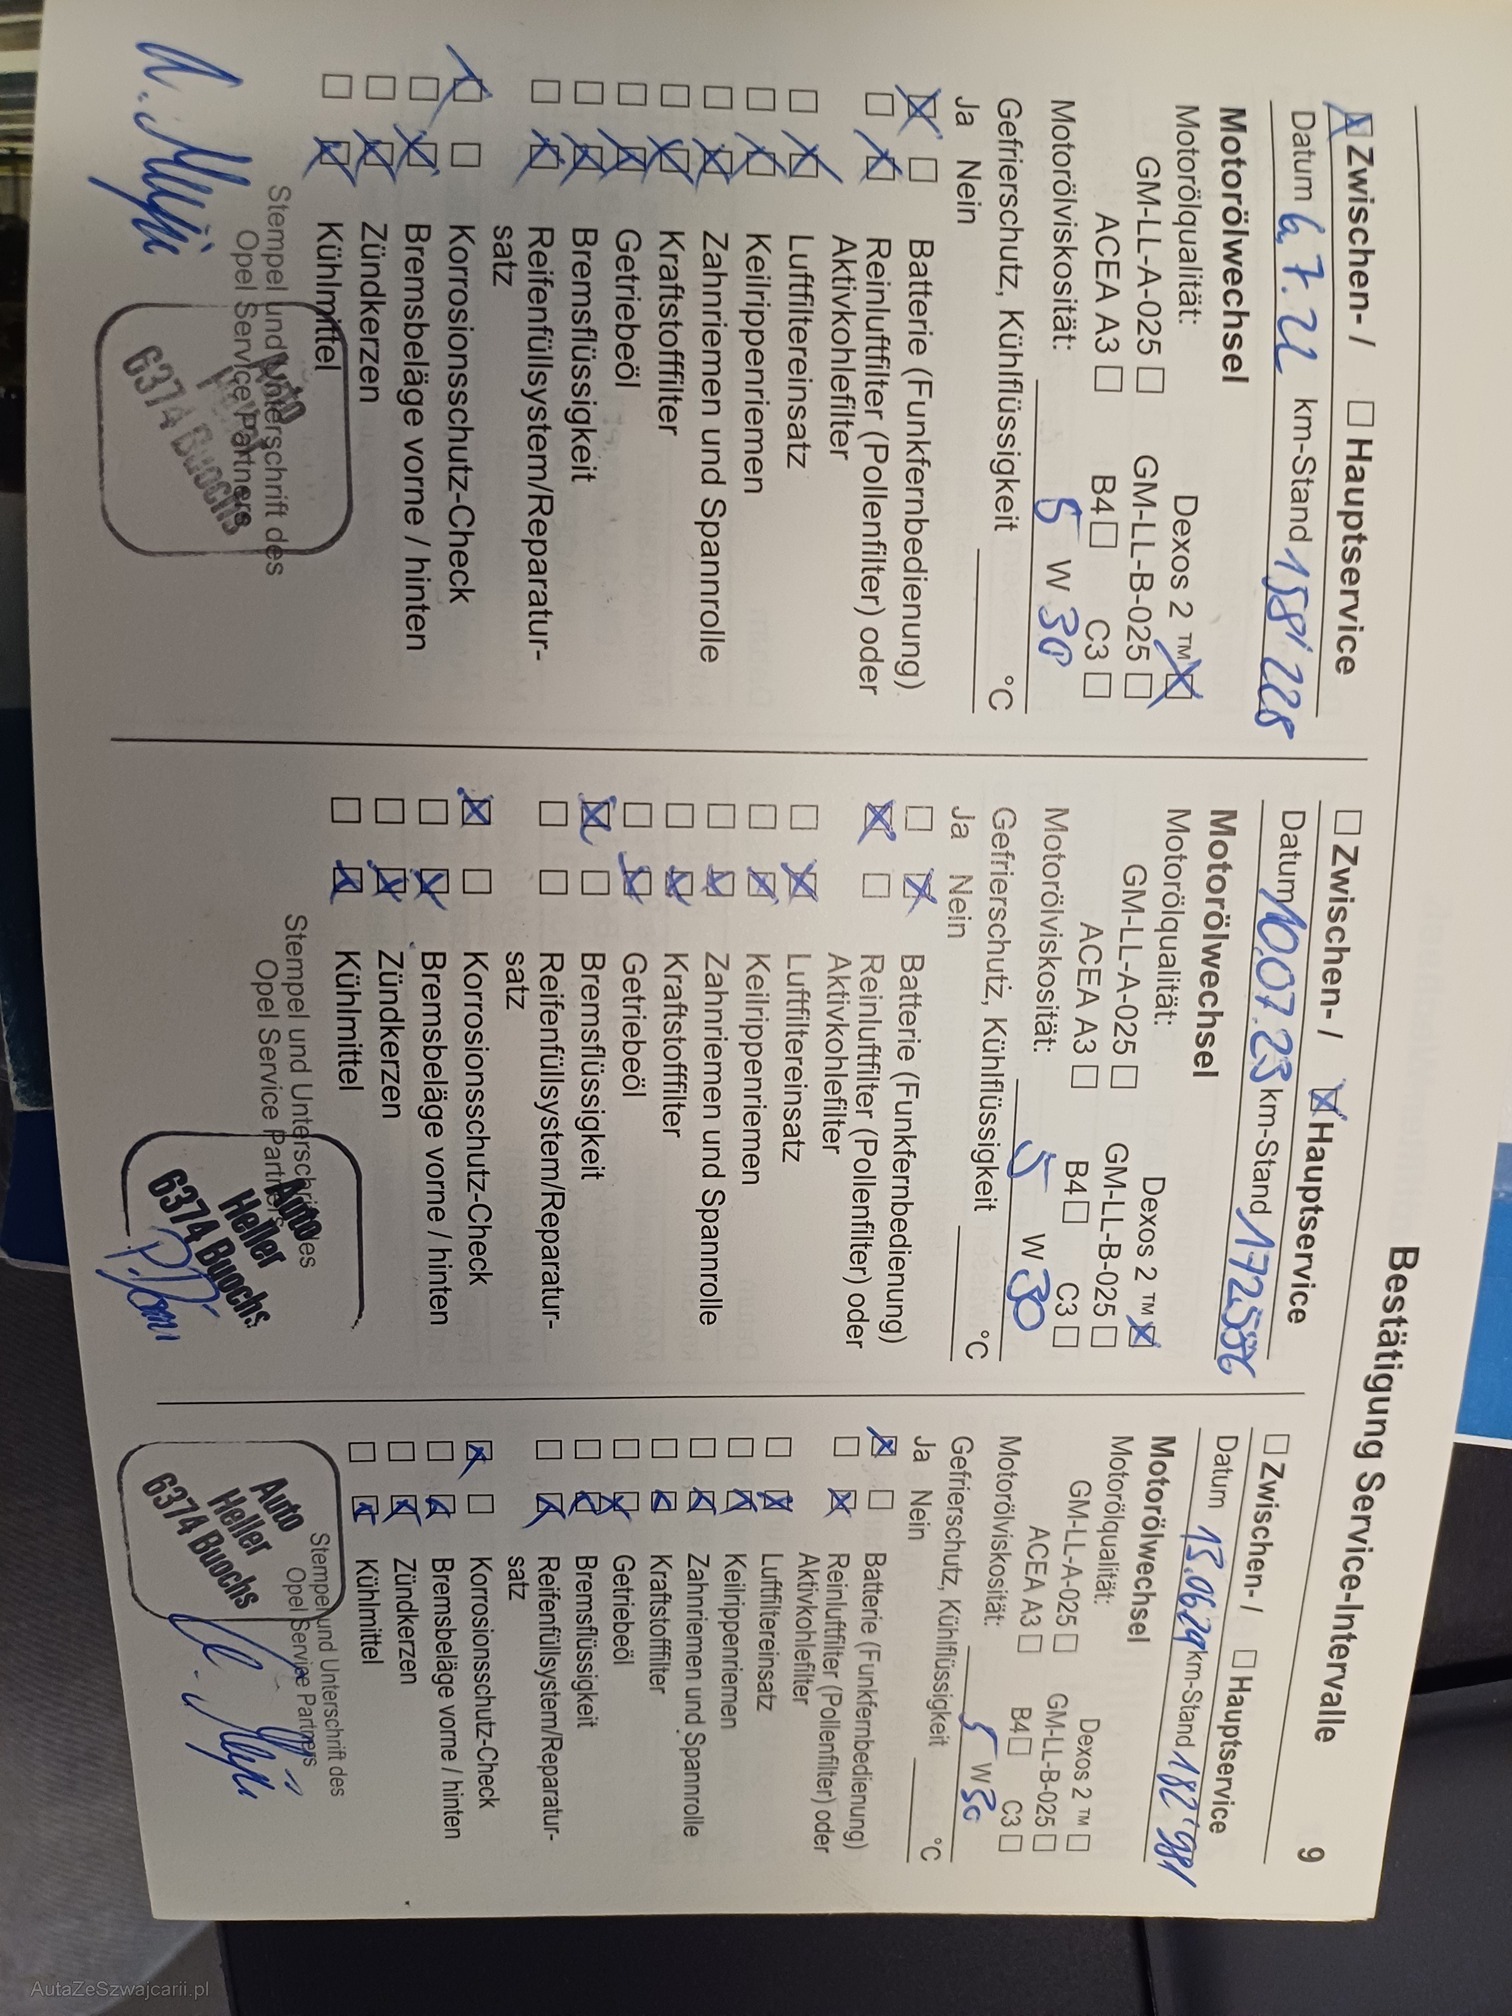 Bestätigung Service-Intervalle 9
Zwischen- / Hauptservice
Datum 6.7.22 km-Stand 158'228
Motorölwechsel
Motorölqualität: Dexos 2 ™
GM-LL-A-025 GM-LL-B-025
ACEA A3 B4 C3
Motorölviskosität: 5 W 30
Gefrierschutz, Kühlflüssigkeit °C
Ja Nein
Batterie (Funkfernbedienung)
Reinluftfilter (Pollenfilter) oder
Aktivkohlefilter
Luftfiltereinsatz
Keilrippenriemen
Zahnriemen und Spannrolle
Kraftstofffilter
Getriebeöl
Bremsflüssigkeit
Reifenfüllsystem/Reparatur-
satz
Korrosionsschutz-Check
Bremsbeläge vorne / hinten
Zündkerzen
Kühlmittel
Stempel und Unterschrift des
Opel Service Partners
Auto
Heller
6374 Buochs
Zwischen- / Hauptservice
Datum 10.07.23 km-Stand 172556
Motorölwechsel
Motorölqualität: Dexos 2 ™
GM-LL-A-025 GM-LL-B-025
ACEA A3 B4 C3
Motorölviskosität: 5 W 30
Gefrierschutz, Kühlflüssigkeit °C
Ja Nein
Batterie (Funkfernbedienung)
Reinluftfilter (Pollenfilter) oder
Aktivkohlefilter
Luftfiltereinsatz
Keilrippenriemen
Zahnriemen und Spannrolle
Kraftstofffilter
Getriebeöl
Bremsflüssigkeit
Reifenfüllsystem/Reparatur-
satz
Korrosionsschutz-Check
Bremsbeläge vorne / hinten
Zündkerzen
Kühlmittel
Stempel und Unterschrift des
Opel Service Partners
Auto
Heller
6374 Buochs
Zwischen- / Hauptservice
Datum 13.06.24 km-Stand 182'981
Motorölwechsel
Motorölqualität: Dexos 2 ™
GM-LL-A-025 GM-LL-B-025
ACEA A3 B4 C3
Motorölviskosität: 5 W 30
Gefrierschutz, Kühlflüssigkeit °C
Ja Nein
Batterie (Funkfernbedienung)
Reinluftfilter (Pollenfilter) oder
Aktivkohlefilter
Luftfiltereinsatz
Keilrippenriemen
Zahnriemen und Spannrolle
Kraftstofffilter
Getriebeöl
Bremsflüssigkeit
Reifenfüllsystem/Reparatur-
satz
Korrosionsschutz-Check
Bremsbeläge vorne / hinten
Zündkerzen
Kühlmittel
Stempel und Unterschrift des
Opel Service Partners
Auto
Heller
6374 Buochs
AutaZeSzwajcarii.pl